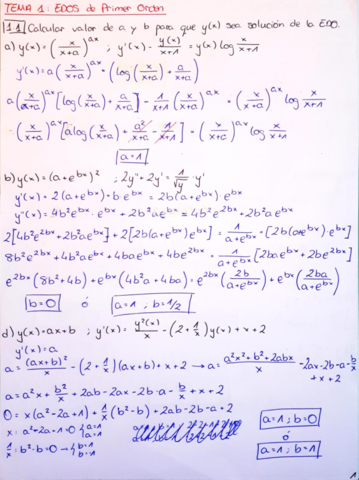 TEMA 1: EDOS de Primer Orden
1.1 Calcular valor de a y b para que y(x) sea solución de la EDO.
a) y(x) = (x/(x+a))^(ax) ; y'(x) - y(x)/(x+1) = y(x) log x/(x+1)
y'(x) = a (x/(x+a))^(ax) · (log(x/(x+a)) + a/(x+a))
a(x/(x+a))^(ax) [log(x/(x+a)) + a/(x+a)] - 1/(x+1) (x/(x+a))^(ax) = (x/(x+a))^(ax) log x/(x+1)
(x/(x+a))^(ax) [a log(x/(x+a)) + a²/(x+a) - 1/(x+1)] = (x/(x+a))^(ax) log x/(x+1)
a=1
b) y(x) = (a+e^(bx))² ; 2y''+2y' = 1/√y · y'
y'(x) = 2(a+e^(bx))·b·e^(bx) = 2b(a+e^(bx))·e^(bx)
y''(x) = 4b²e^(bx)·e^(bx) + 2b²ae^(bx) = 4b²e^(2bx) + 2b²ae^(bx)
2[4b²e^(2bx) + 2b²ae^(bx)] + 2[2b(a+e^(bx))e^(bx)] = 1/(a+e^(bx)) · [2b(a+e^(bx))e^(bx)]
8b²e^(2bx) + 4b²ae^(bx) + 4bae^(bx) + 4be^(2bx) = 1/(a+e^(bx)) [2bae^(bx) + 2be^(2bx)]
e^(2bx)(8b²+4b) + e^(bx)(4b²a+4ba) = e^(2bx)(2b/(a+e^(bx))) + e^(bx)(2ba/(a+e^(bx)))
b=0 ó a=1 ; b=1/2
d) y(x) = ax+b ; y'(x) = y²(x)/x - (2+1/x)y(x) + x + 2
y'(x) = a
a = (ax+b)²/x - (2+1/x)(ax+b) + x+2 → a = (a²x²+b²+2abx)/x - 2ax-2b-a-b/x
+x+2
a = a²x + b²/x + 2ab - 2ax - 2b - a - b/x + x + 2
0 = x(a²-2a+1) + 1/x(b²-b) + 2ab - 2b - 2a + 2
x: a²+2a+1=0 {a=1 a=1
1/x: b²-b=0 → {b=1 b=1
a=1; b=0
ó
a=1; b=1
1